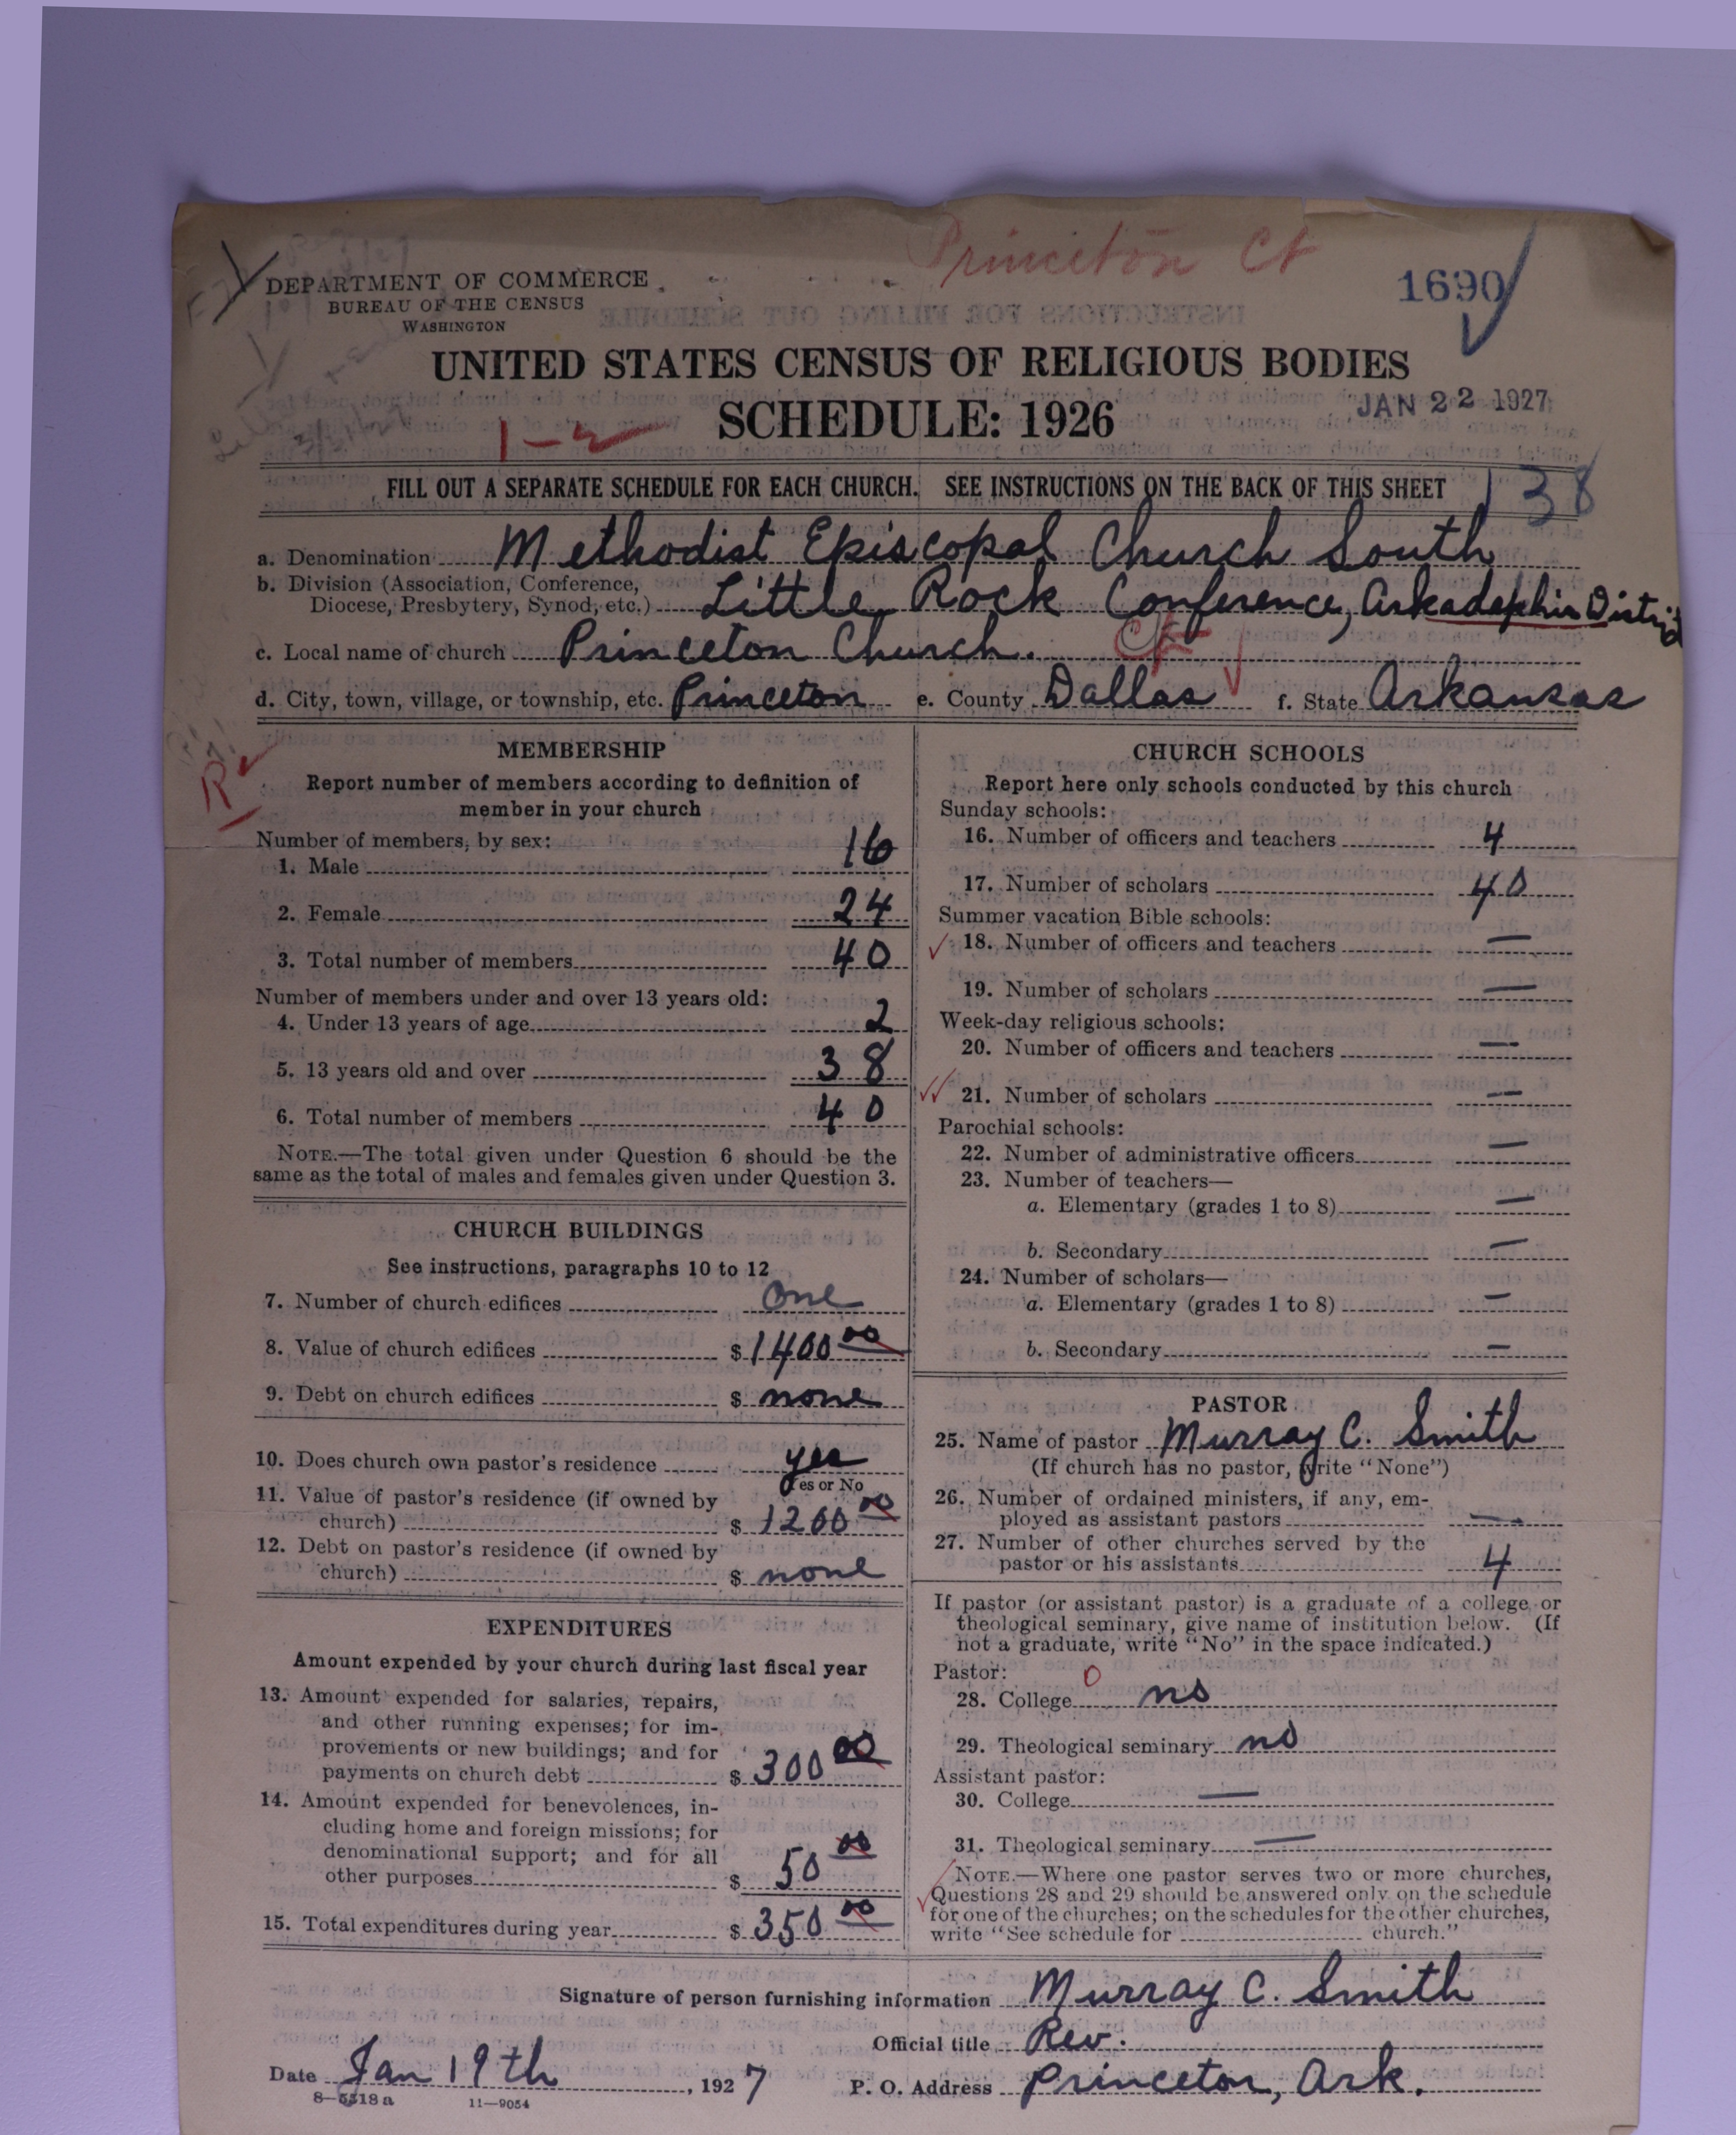 Princeton Ct
DEPARTMENT OF COMMERCE
BUREAU OF THE CENSUS
WASHINGTON
1690
UNITED STATES CENSUS OF RELIGIOUS BODIES
SCHEDULE: 1926
JAN 22 1927
1-2
FILL OUT A SEPARATE SCHEDULE FOR EACH CHURCH. SEE INSTRUCTIONS ON THE BACK OF THIS SHEET
138
a. Denomination Methodist Episcopal Church South
b. Division (Association, Conference,
Diocese, Presbytery, Synod, etc.) Little Rock Conference, Arkadephia District
c. Local name of church Princeton Church.
d. City, town, village, or township, etc. Princeton e. County Dallas f. State Arkansas
MEMBERSHIP
Report number of members according to definition of
member in your church
Number of members, by sex:
1. Male 16
2. Female 24
3. Total number of members 40
Number of members under and over 13 years old:
4. Under 13 years of age 2
5. 13 years old and over 38
6. Total number of members 40
NOTE.—The total given under Question 6 should be the
same as the total of males and females given under Question 3.
CHURCH BUILDINGS
See instructions, paragraphs 10 to 12
7. Number of church edifices One
8. Value of church edifices $1400 00
9. Debt on church edifices $ none
10. Does church own pastor's residence yes
Yes or No
11. Value of pastor's residence (if owned by
church) $ 1200 00
12. Debt on pastor's residence (if owned by
church) $ none
EXPENDITURES
Amount expended by your church during last fiscal year
13. Amount expended for salaries, repairs,
and other running expenses; for im-
provements or new buildings; and for
payments on church debt $ 300 00
14. Amount expended for benevolences, in-
cluding home and foreign missions; for
denominational support; and for all
other purposes $ 50 00
15. Total expenditures during year $ 350 00
CHURCH SCHOOLS
Report here only schools conducted by this church
Sunday schools:
16. Number of officers and teachers 4
17. Number of scholars 40
Summer vacation Bible schools:
18. Number of officers and teachers —
19. Number of scholars —
Week-day religious schools:
20. Number of officers and teachers —
21. Number of scholars —
Parochial schools:
22. Number of administrative officers —
23. Number of teachers—
a. Elementary (grades 1 to 8) —
b. Secondary —
24. Number of scholars—
a. Elementary (grades 1 to 8) —
b. Secondary —
PASTOR
25. Name of pastor Murray C. Smith
(If church has no pastor, write "None")
26. Number of ordained ministers, if any, em-
ployed as assistant pastors —
27. Number of other churches served by the
pastor or his assistants 4
If pastor (or assistant pastor) is a graduate of a college or
theological seminary, give name of institution below. (If
not a graduate, write "No" in the space indicated.)
Pastor: 0
28. College no
29. Theological seminary no
Assistant pastor:
30. College —
31. Theological seminary —
NOTE.—Where one pastor serves two or more churches,
Questions 28 and 29 should be answered only on the schedule
for one of the churches; on the schedules for the other churches,
write "See schedule for church."
Signature of person furnishing information Murray C. Smith
Official title Rev.
Date Jan 19th, 1927
P. O. Address Princeton, Ark.
8-5518a 11-9054